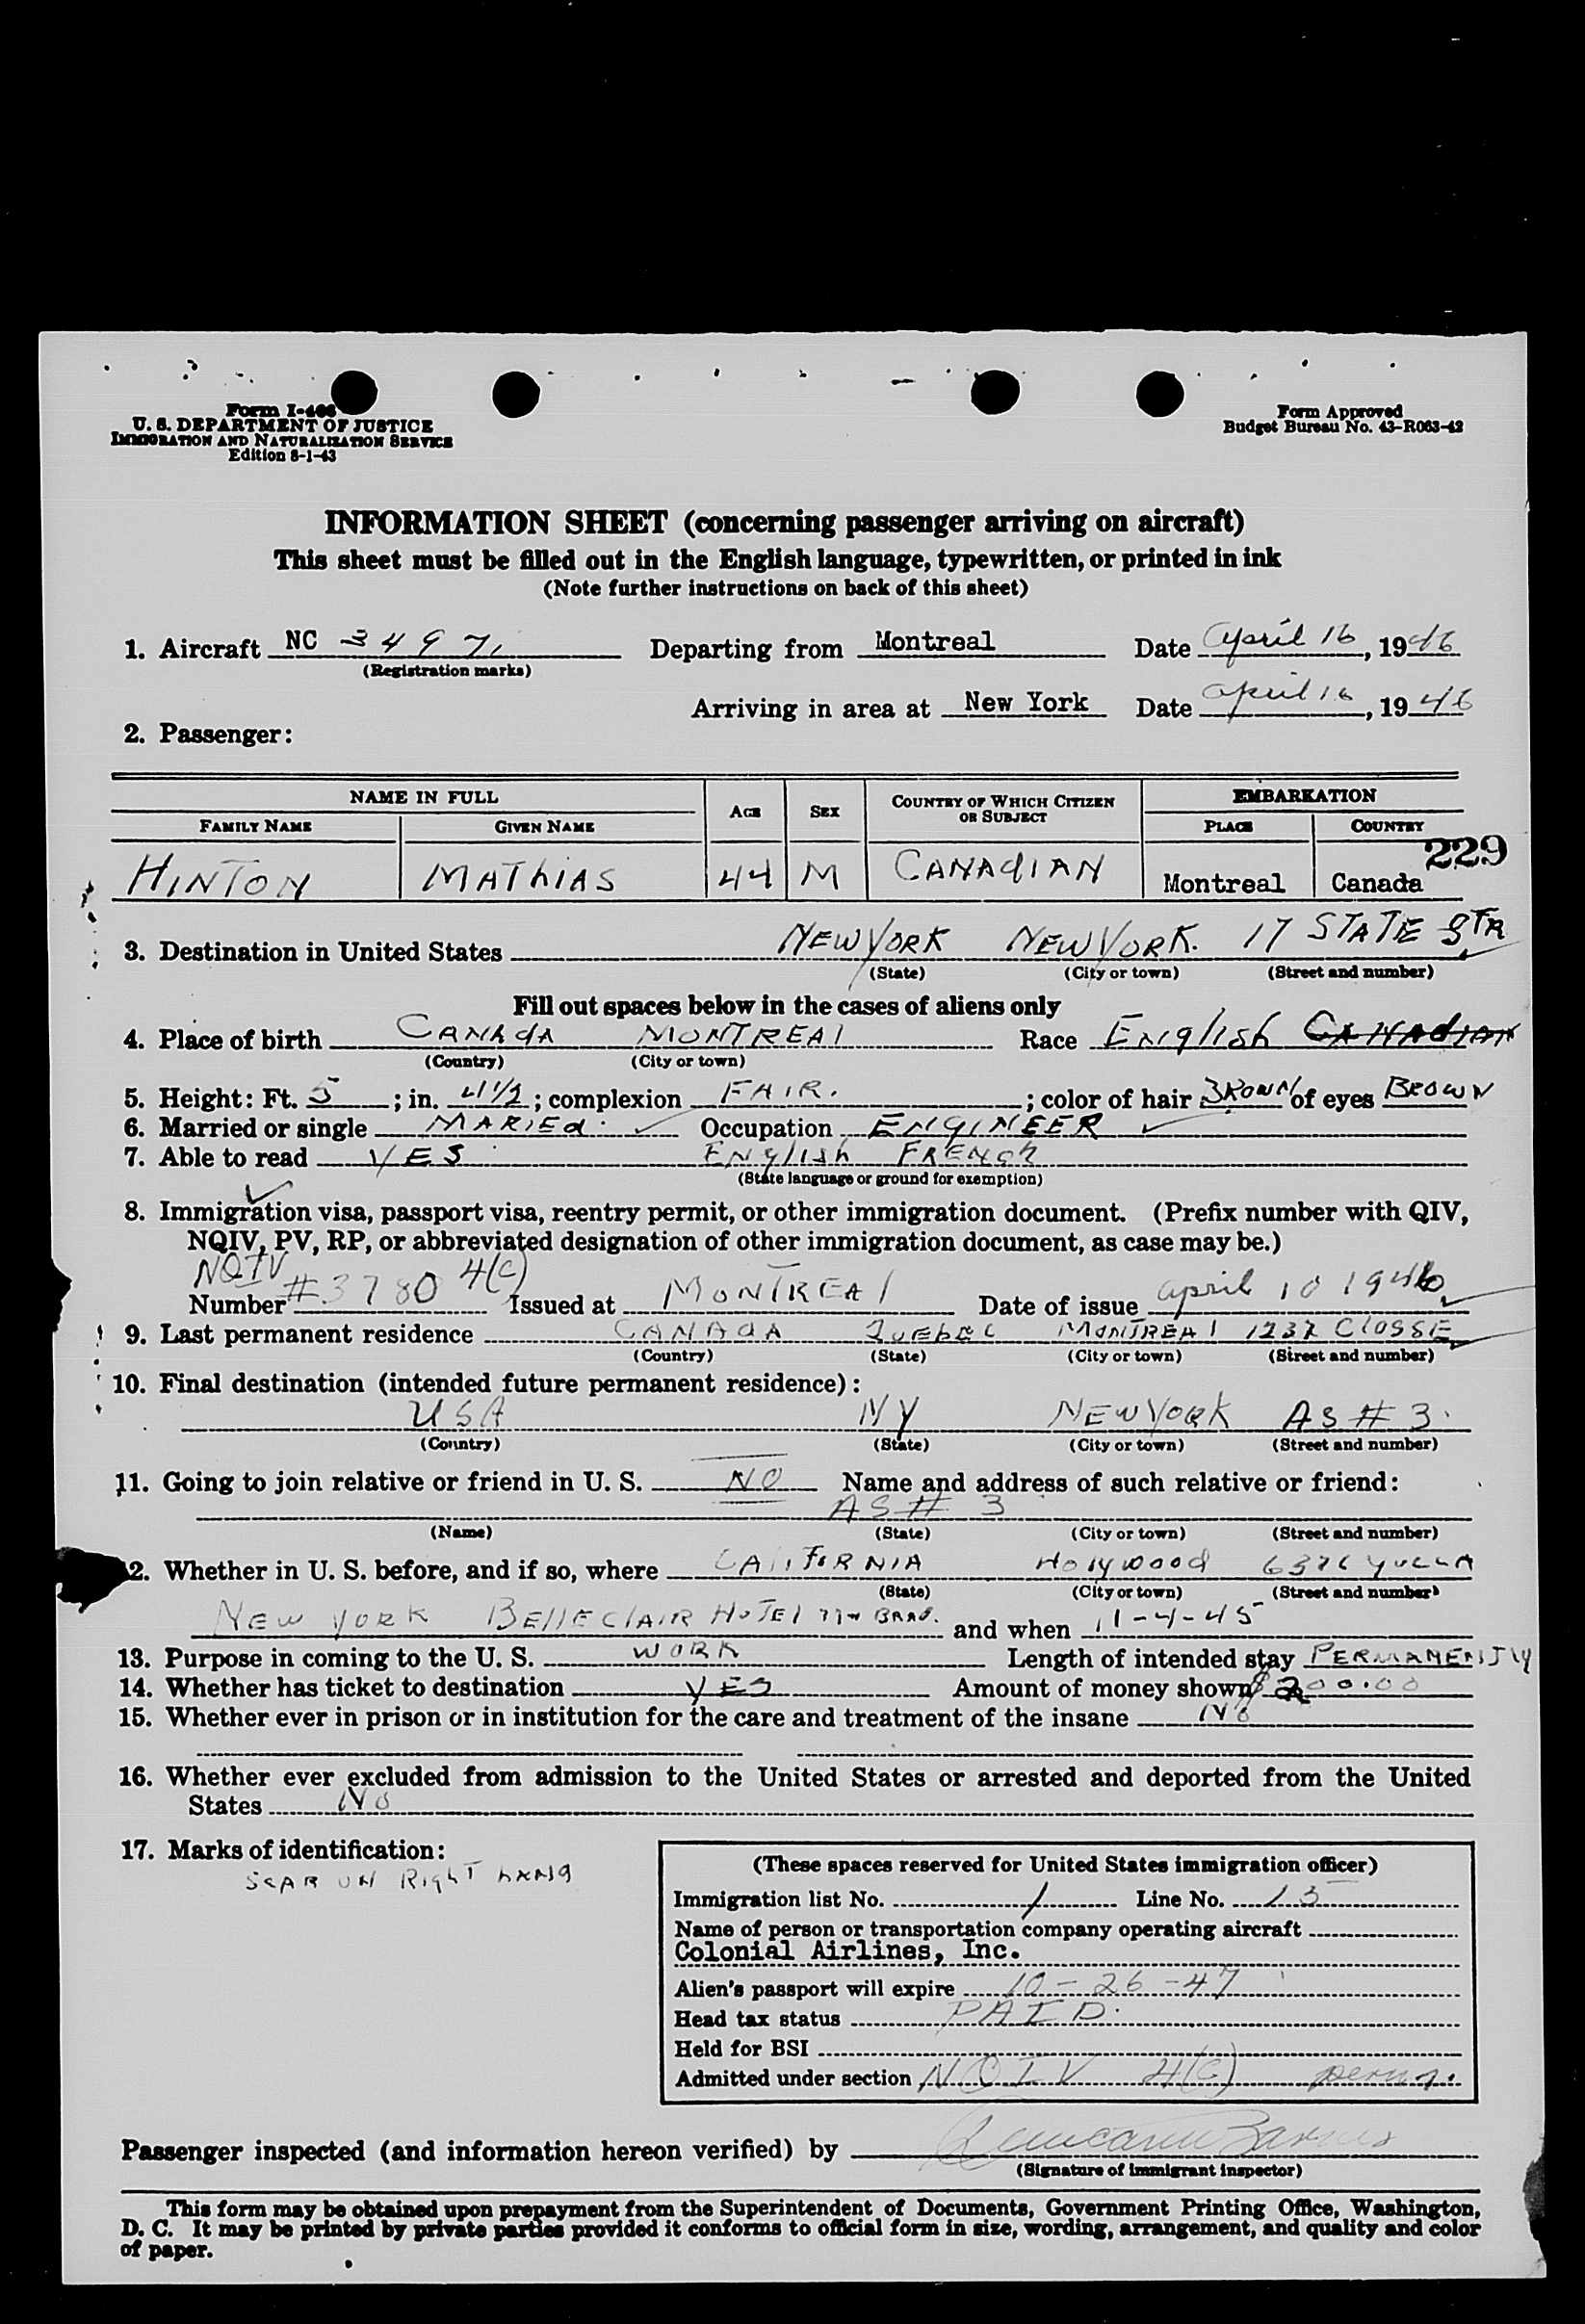 Form I-466
U. S. DEPARTMENT OF JUSTICE
IMMIGRATION AND NATURALIZATION SERVICE
Edition 8-1-43
Form Approved
Budget Bureau No. 43-R063-42
INFORMATION SHEET (concerning passenger arriving on aircraft)
This sheet must be filled out in the English language, typewritten, or printed in ink
(Note further instructions on back of this sheet)
1. Aircraft NC 34971 Departing from Montreal Date April 16, 1946
(Registration marks)
Arriving in area at New York Date April 16, 1946
2. Passenger:
NAME IN FULL AGE SEX COUNTRY OF WHICH CITIZEN OR SUBJECT EMBARKATION
FAMILY NAME GIVEN NAME PLACE COUNTRY
229
HINTON MATHIAS 44 M CANADIAN Montreal Canada
3. Destination in United States NEW YORK NEW YORK. 17 STATE STR
(State) (City or town) (Street and number)
Fill out spaces below in the cases of aliens only
4. Place of birth CANADA MONTREAL Race English CANADIAN
(Country) (City or town)
5. Height: Ft. 5; in. 4 1/2; complexion FAIR.; color of hair BROWN of eyes BROWN
6. Married or single MARIEd. Occupation ENGINEER
7. Able to read YES English FRENCh
(State language or ground for exemption)
8. Immigration visa, passport visa, reentry permit, or other immigration document. (Prefix number with QIV,
NQIV, PV, RP, or abbreviated designation of other immigration document, as case may be.)
NQIV 4(c)
Number #3780 Issued at MONTREAL Date of issue April 10 1946
9. Last permanent residence CANADA QUEBEC MONTREAL 1232 CLOSSE
(Country) (State) (City or town) (Street and number)
10. Final destination (intended future permanent residence):
USA NY NEW YORK AS # 3.
(Country) (State) (City or town) (Street and number)
11. Going to join relative or friend in U. S. NO Name and address of such relative or friend:
AS # 3
(Name) (State) (City or town) (Street and number)
12. Whether in U. S. before, and if so, where CALIFORNIA HOLYWOOD 6376 YUCCA
(State) (City or town) (Street and number)
NEW YORK BELLECLAIR HOTEL 77 BRAD. and when 11-4-45
13. Purpose in coming to the U. S. WORK Length of intended stay PERMANENTLY
14. Whether has ticket to destination YES Amount of money shown $200.00
15. Whether ever in prison or in institution for the care and treatment of the insane NO
16. Whether ever excluded from admission to the United States or arrested and deported from the United
States NO
17. Marks of identification:
SCAR ON RIGHT HAND
(These spaces reserved for United States immigration officer)
Immigration list No. 1 Line No. 13
Name of person or transportation company operating aircraft
Colonial Airlines, Inc.
Alien's passport will expire 10-26-47
Head tax status PAID.
Held for BSI
Admitted under section NQIV 4(C) perm.
Passenger inspected (and information hereon verified) by
(Signature of immigrant inspector)
This form may be obtained upon prepayment from the Superintendent of Documents, Government Printing Office, Washington,
D. C. It may be printed by private parties provided it conforms to official form in size, wording, arrangement, and quality and color
of paper.